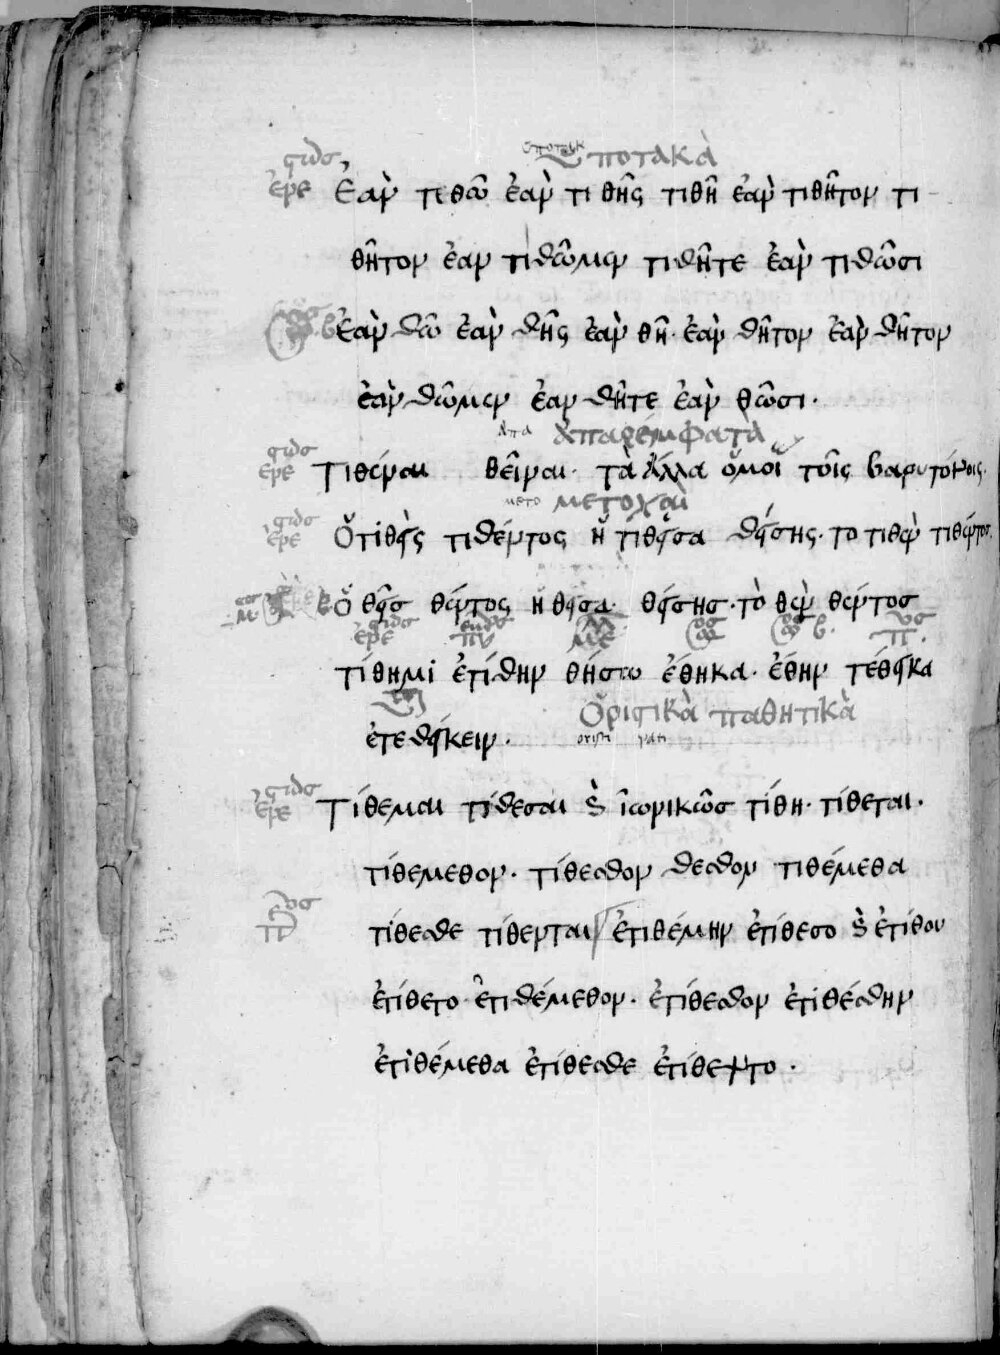 ὑποτακ Ὑποτακὰ
Ἐὰν τιθῶ ἐὰν τιθῆς τιθῆ ἐὰν τιθῆτον τι
θῆτον ἐὰν τιθῶμεν τιθῆτε ἐὰν τιθῶσι
Ἐὰν θῶ ἐὰν θῆς ἐὰν θῆ· ἐὰν θῆτον ἐὰν θῆτον
ἐὰν θῶμεν ἐὰν θῆτε ἐὰν θῶσι·
ἀπα ἀπαρέμφατα
Τιθέναι θεῖναι· τὰ ἄλλα ὅμοι τοῖς βαρυτόνοις.
μετο μετοχαὶ
Ὁ τιθεὶς τιθέντος ἡ τιθεῖσα θείσης· το τιθὲν τιθέντος.
Ὁ θεὶς θέντος ἡ θεῖσα· θείσης· τὸ θὲν θέντος
τίθημι ἐτίθην θήσω ἔθηκα· ἔθην τέθεικα
ἐτεθείκειν·
Ὁριστικὰ παθητικὰ
Τίθεμαι τίθεσαι ἰωνικῶς τίθη· τίθεται·
τιθέμεθον· τίθεσθον θεσθον τιθέμεθα
τίθεσθε τίθενται ἐτιθέμην ἐτίθεσο ἐτίθου
ἐτίθετο ἐτιθέμεθον· ἐτίθεσθον ἐτιθέσθην
ἐτιθέμεθα ἐτίθεσθε ἐτίθεντο·